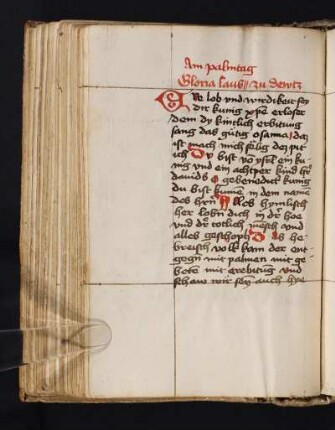 Am palmtag
Gloria laus // zu dewtz
Ere lob vnd wirdikeit sey
dir kunig xpe erloser
dem dy kintlich erbitung
sang das gutig osanna / daz
ist mach mich selig des pit
ich Du bist vo ysrl ein ku-
nig vnd ein achtper kind hr
dauids gebenedict kunig
du bist kume in dem name
des hrn Alles hymlisch
her lobn dich in dr hoe
vnd dr totlich mensch vnd
alles geschoph Das he-
breisch volk kam der ent-
gegn mit palmen mit ge-
bete mit erebitung vnd
schaw wir seyn auch hye